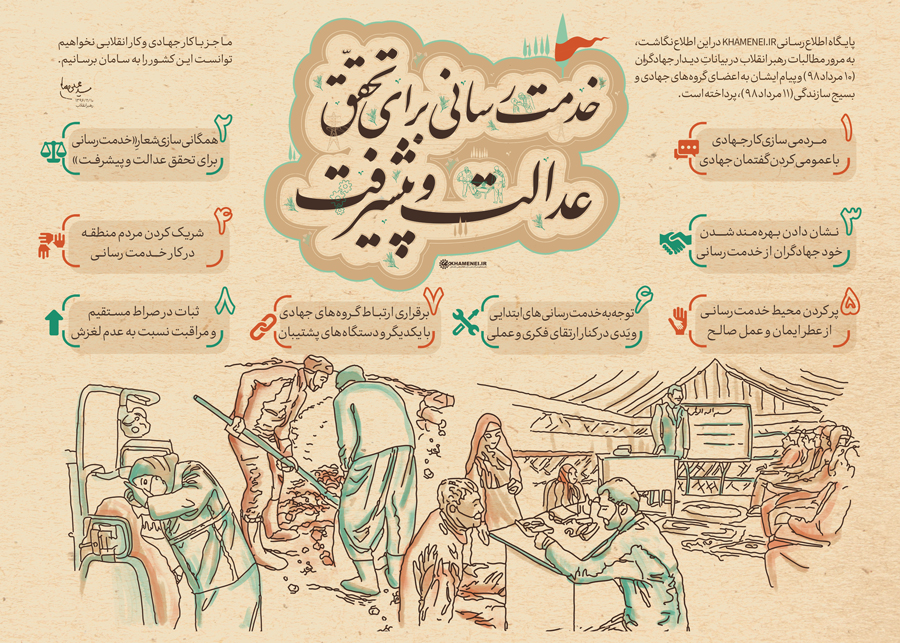 پایگاه اطلاع‌رسانی KHAMENEI.IR در این اطلاع‌نگاشت،
به مرور مطالبات رهبر انقلاب در بیانات دیدار جهادگران
(۱۰ مرداد ۹۸) و پیام ایشان به اعضای گروه‌های جهادی و
بسیج سازندگی (۱۱ مرداد ۹۸)، پرداخته است.
خدمت رسانی برای تحقّق
عدالت و پیشرفت
KHAMENEI.IR
ما جز با کار جهادی و کار انقلابی نخواهیم
توانست این کشور را به سامان برسانیم.
۱
مردمی سازی کار جهادی
با عمومی کردن گفتمان جهادی
۲
همگانی سازی شعار «خدمت رسانی
برای تحقق عدالت و پیشرفت»
۳
نشان دادن بهره‌مند شدن
خود جهادگران از خدمت رسانی
۴
شریک کردن مردم منطقه
در کار خدمت رسانی
۵
پر کردن محیط خدمت رسانی
از عطر ایمان و عمل صالح
۶
توجه به خدمت رسانی های ابتدایی
و یَدی در کنار ارتقای فکری و عملی
۷
برقراری ارتباط گروه های جهادی
با یکدیگر و دستگاه های پشتیبان
۸
ثبات در صراط مستقیم
و مراقبت نسبت به عدم لغزش